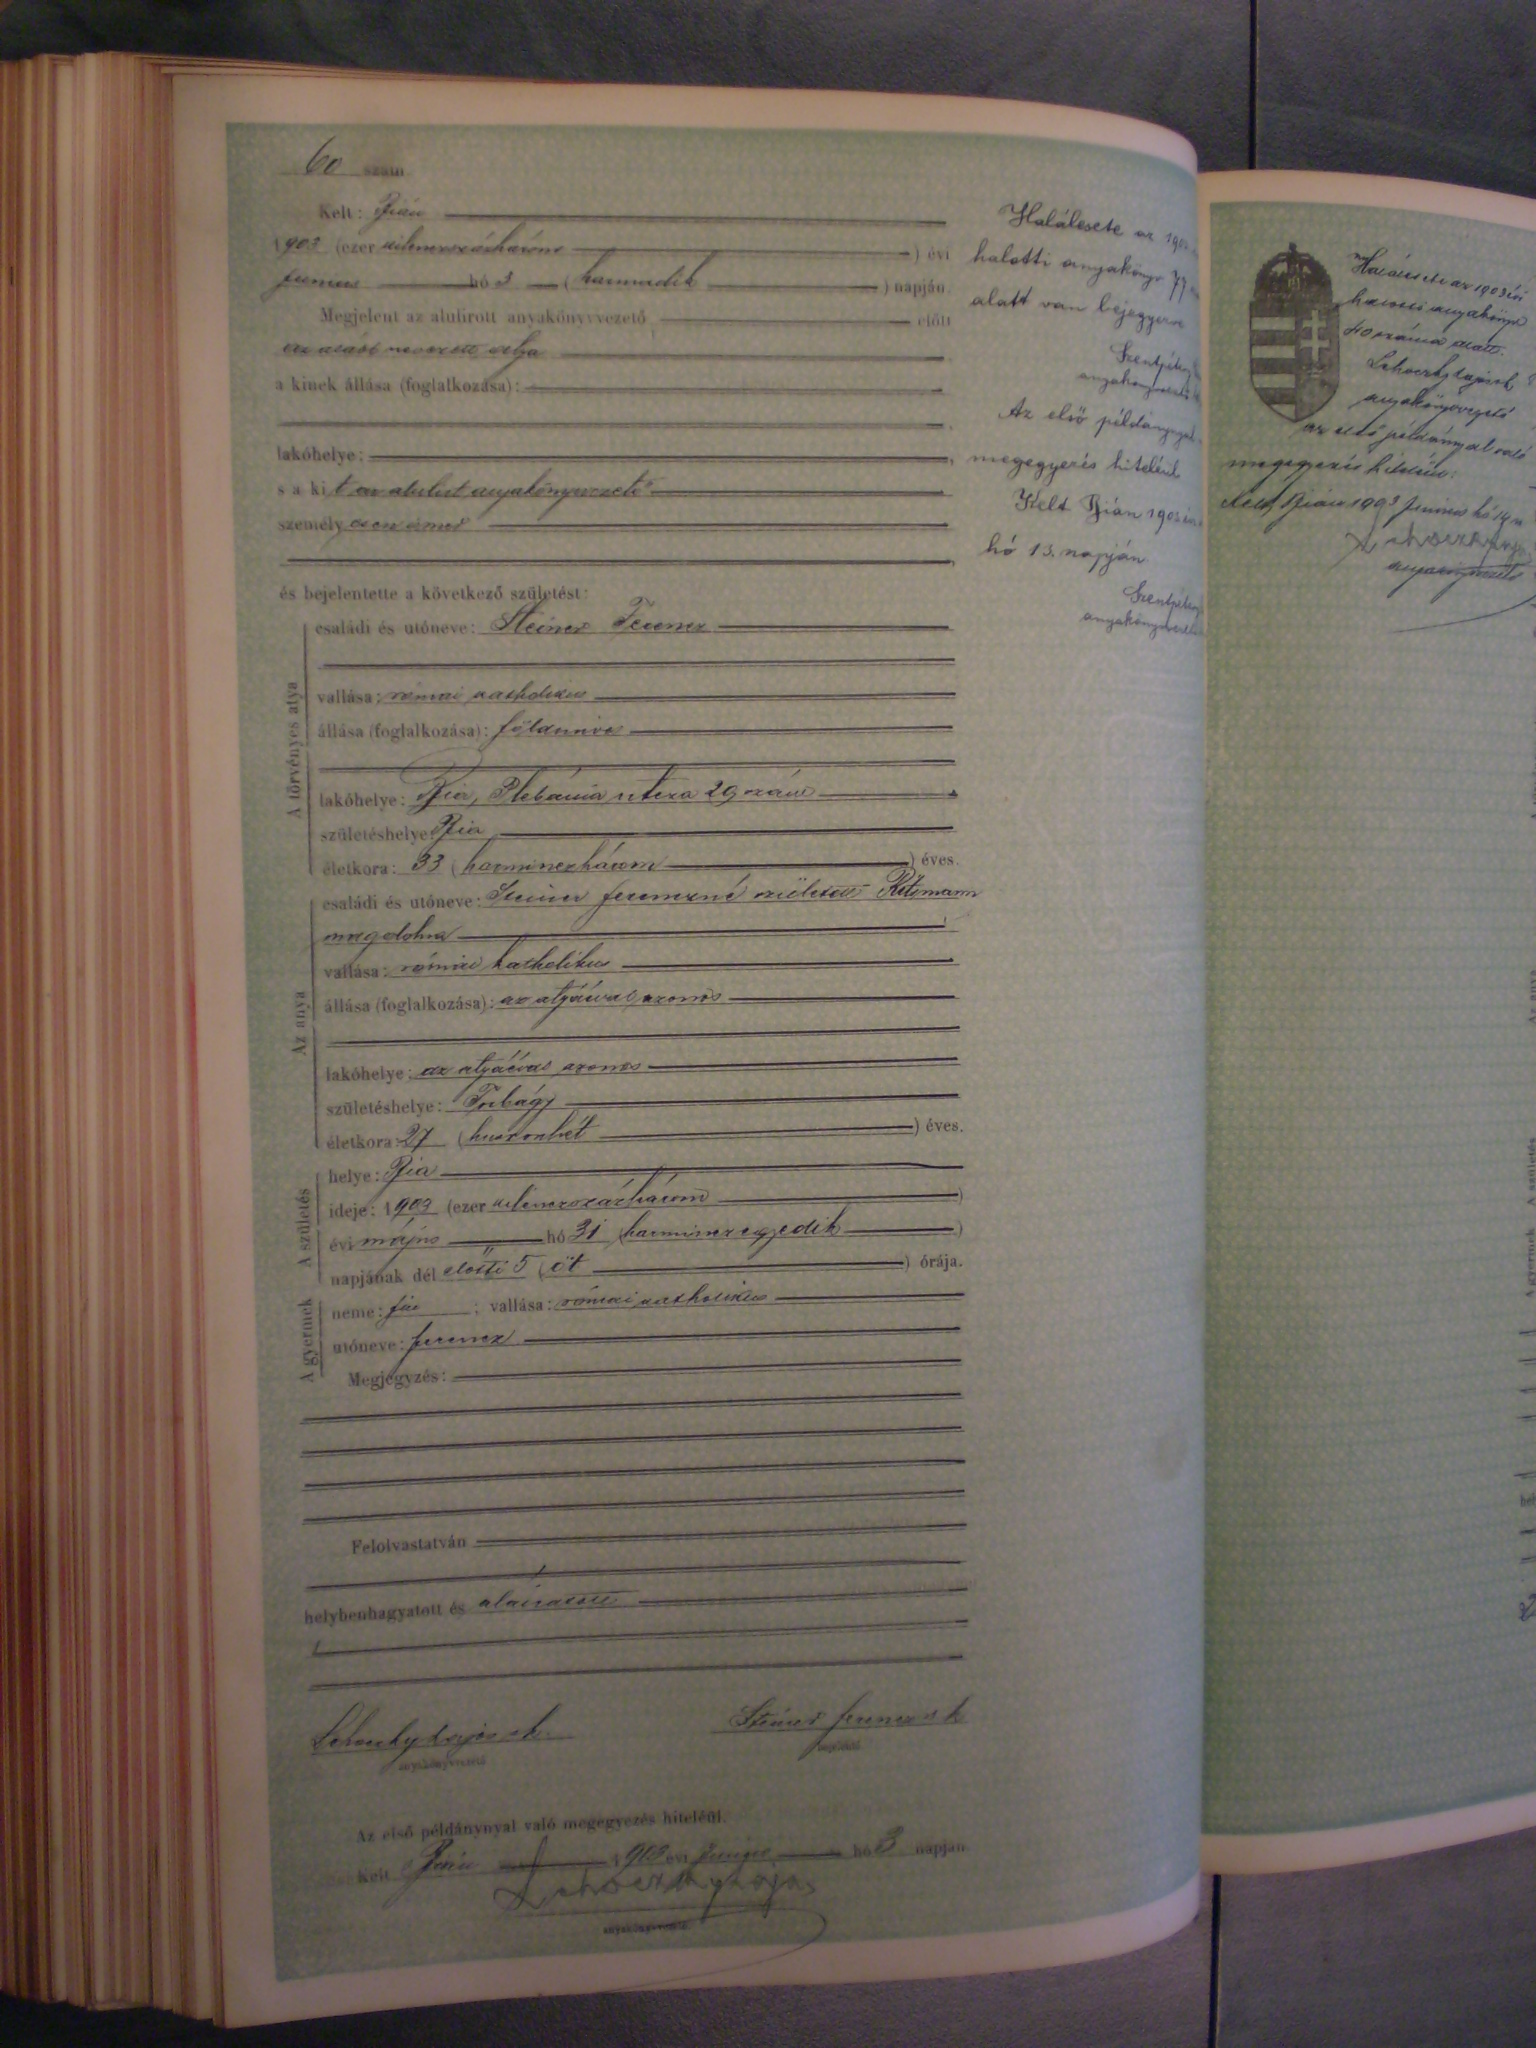 60 szám
Kelt: Bián
1903 (ezer kilenczszázhárom ) évi
junius hó 3 (harmadik ) napján.
Megjelent az alulirott anyakönyvvezető előtt
az alább nevezett atya
a kinek állása (foglalkozása):
lakóhelye:
s a kit az alulirt anyakönyvvezető
személyesen ismer
és bejelentette a következő születést:
A törvényes atya
családi és utóneve: Steiner Ferencz
vallása: római katholikus
állása (foglalkozása): földmives
lakóhelye: Bia, Plebánia utcza 29 szám
születéshelye: Bia
életkora: 33 (harminczhárom ) éves.
Az anya
családi és utóneve: Steiner Ferenczné született
magdolna
vallása: római katholikus
állása (foglalkozása): az atyáéval azonos
lakóhelye: az atyáéval azonos
születéshelye: Torbágy
életkora: 27 (huszonhét ) éves.
A születés
helye: Bia
ideje: 1903 (ezer kilenczszázhárom )
évi május hó 31 (harminczegyedik )
napjának dél előtti 5 (öt ) órája.
A gyermek
neme: fiu ; vallása: római katholikus
utóneve: ferencz
Megjegyzés:
Felolvastatván
helybenhagyatott és aláiratott
Lehoczky Lajos sk.
anyakönyvvezető
Steiner ferencz sk
bejelentő
Az első példánynyal való megegyezés hiteléül.
Kelt Bián 1903 évi junius hó 3 napján.
Lehoczky Lajos
anyakönyvvezető
Halálesete az
halotti anyakönyv 77
alatt van bejegyezve
anyakönyvvezető
Az első példánynyal
megegyezés hiteléül
Kelt Bián
hó 13. napján
anyakönyvvezető
Halálesete az 1903 évi
halotti anyakönyv
40 száma alatt.
Lehoczky Lajos sk
anyakönyvvezető
az első példánynyal való
megegyezés hiteléül:
Kelt, Bián 1903 Junius hó 14 n
Lehoczky Lajos
anyakönyvvezető